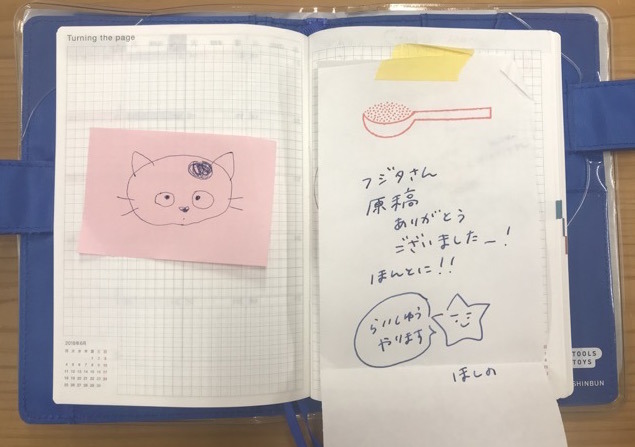 Turning the page
2018年6月
フジタさん
原稿
ありがとう
ございましたー!
ほんとに!!
らいしゅう
やります
ほしの
TOOLS
TOYS
SHINBUN